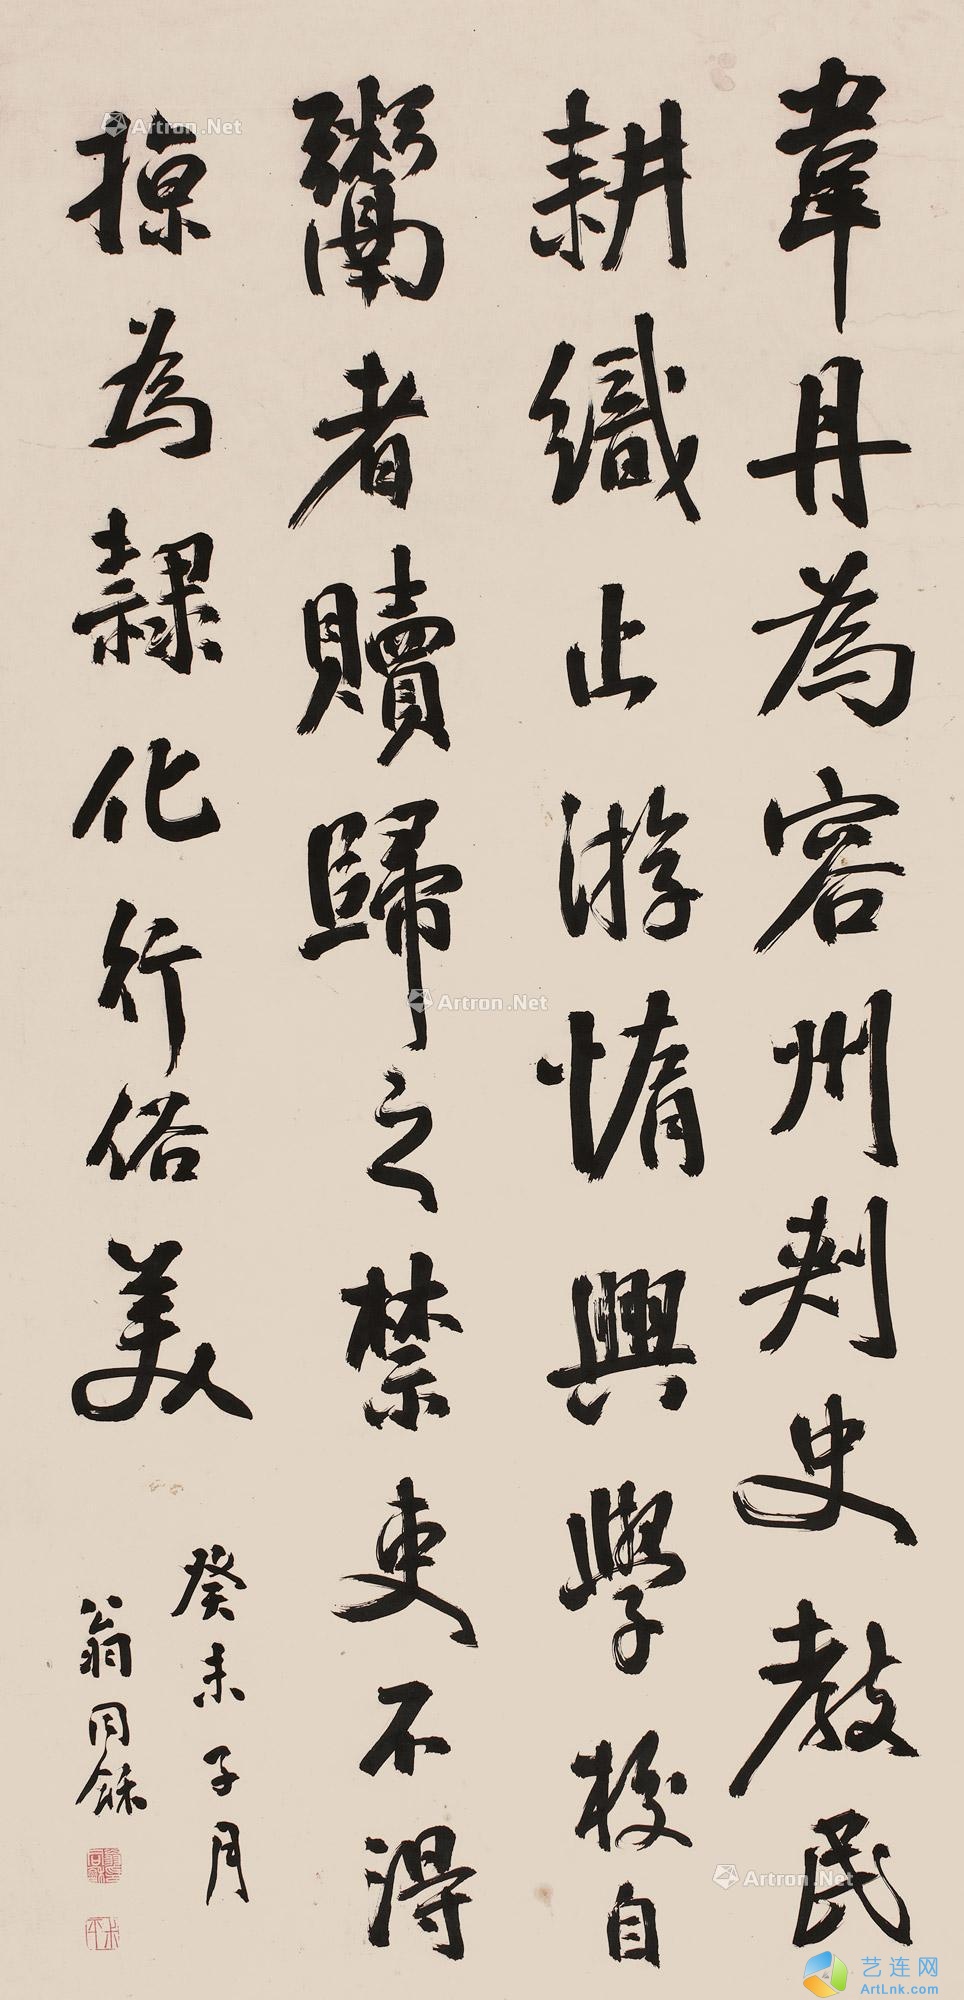 韋丹為容州刺史教民
耕織止游惰興學校自
鬻者贖歸之禁吏不得
掠為隸化行俗美
癸未子月
翁同龢
Artron.Net
Artron.Net
Artron.Net
Artron.Net
艺连网
ArtLnk.com